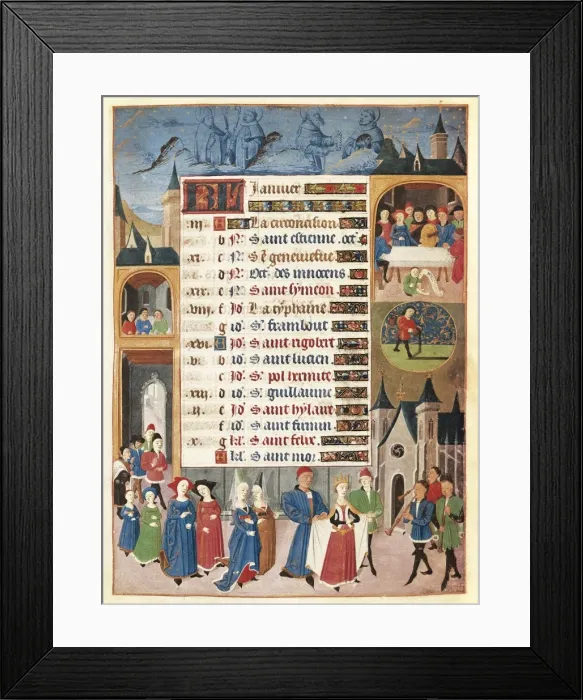 KL Januier
.iii. A La circoncision
b N Saint estienne. oct
.xi. c N Sᵉ geneuiefue
d N Oct. des innocens
.xix. e N Saint symeon
.viii. f Id La typhaine
g id Sᵗ frambout
.xvi. A Id Saint rigobert
.v. b id Saint lucien
c Id Sᵗ pol hermite
.xiii. d id Sᵗ guillaume
.ii. e Id Saint hylaire
f id Saint firmin
.x. g kl Saint felix
A kl Saint mor